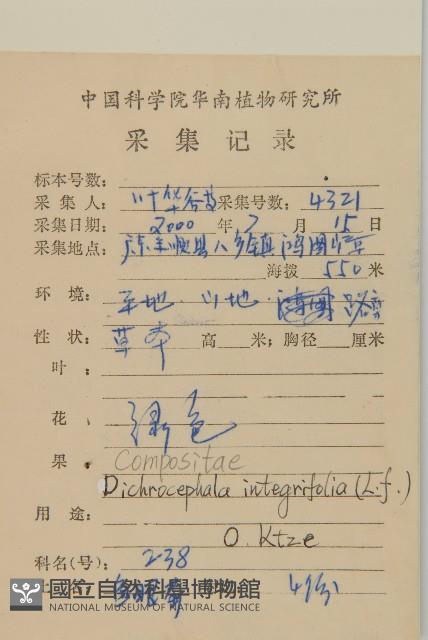 中国科学院华南植物研究所
采集记录
标本号数:
采集人: 叶华谷 采集号数: 4321
采集日期: 2000 年 7 月 15 日
采集地点: 丰顺县八乡镇鸿图
海拨 550 米
环境: 平地 山地 路旁
性状: 草本 高 米; 胸径 厘米
叶:
花: 绿色
果: Compositae
Dichrocephala integrifolia (L.f.)
用途: O. Ktze
科名(号): 238
4份
國立自然科學博物館
NATIONAL MUSEUM OF NATURAL SCIENCE